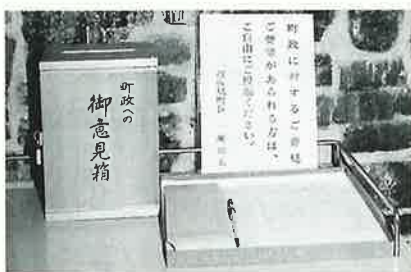 町政への
御意見箱
町政に対するご意見
ご要望があられる方は、
ご自由にご投函ください。